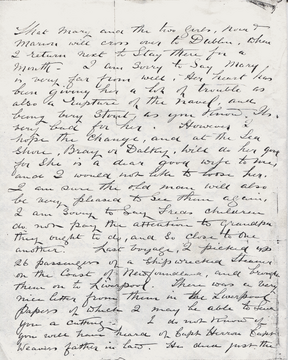 that Mary and the two Girls, Nora &
Marion will cross over to Dublin, when
I return next to stay there for a
month. I am sorry to say Mary
is very far from well, Her heart has
been giving her a lot of trouble as
also a rupture of the navel, and
being very stout as you know. Its
very bad for her. However I
hope the change, and at the Sea
Shore, Bray or Dalkey, will do her good
for She is a dear good wife to me,
and I would not like to loose her.
I am sure the old man will also
be very pleased to see them again,
I am sorry to say children
do not pay the attention to Grandpa
they ought to do, and so close to one
another. Last voyage I picked up
26 passengers of a Shipwrecked Steamer
on the Coast of Newfoundland, and brought
them on to Liverpool. There was a very
nice letter from them in the Liverpool
papers of which I may be able to send
you a cutting. I do not know if
you will have heard of Capt Heron Capt
Weavers father in law. He died just the